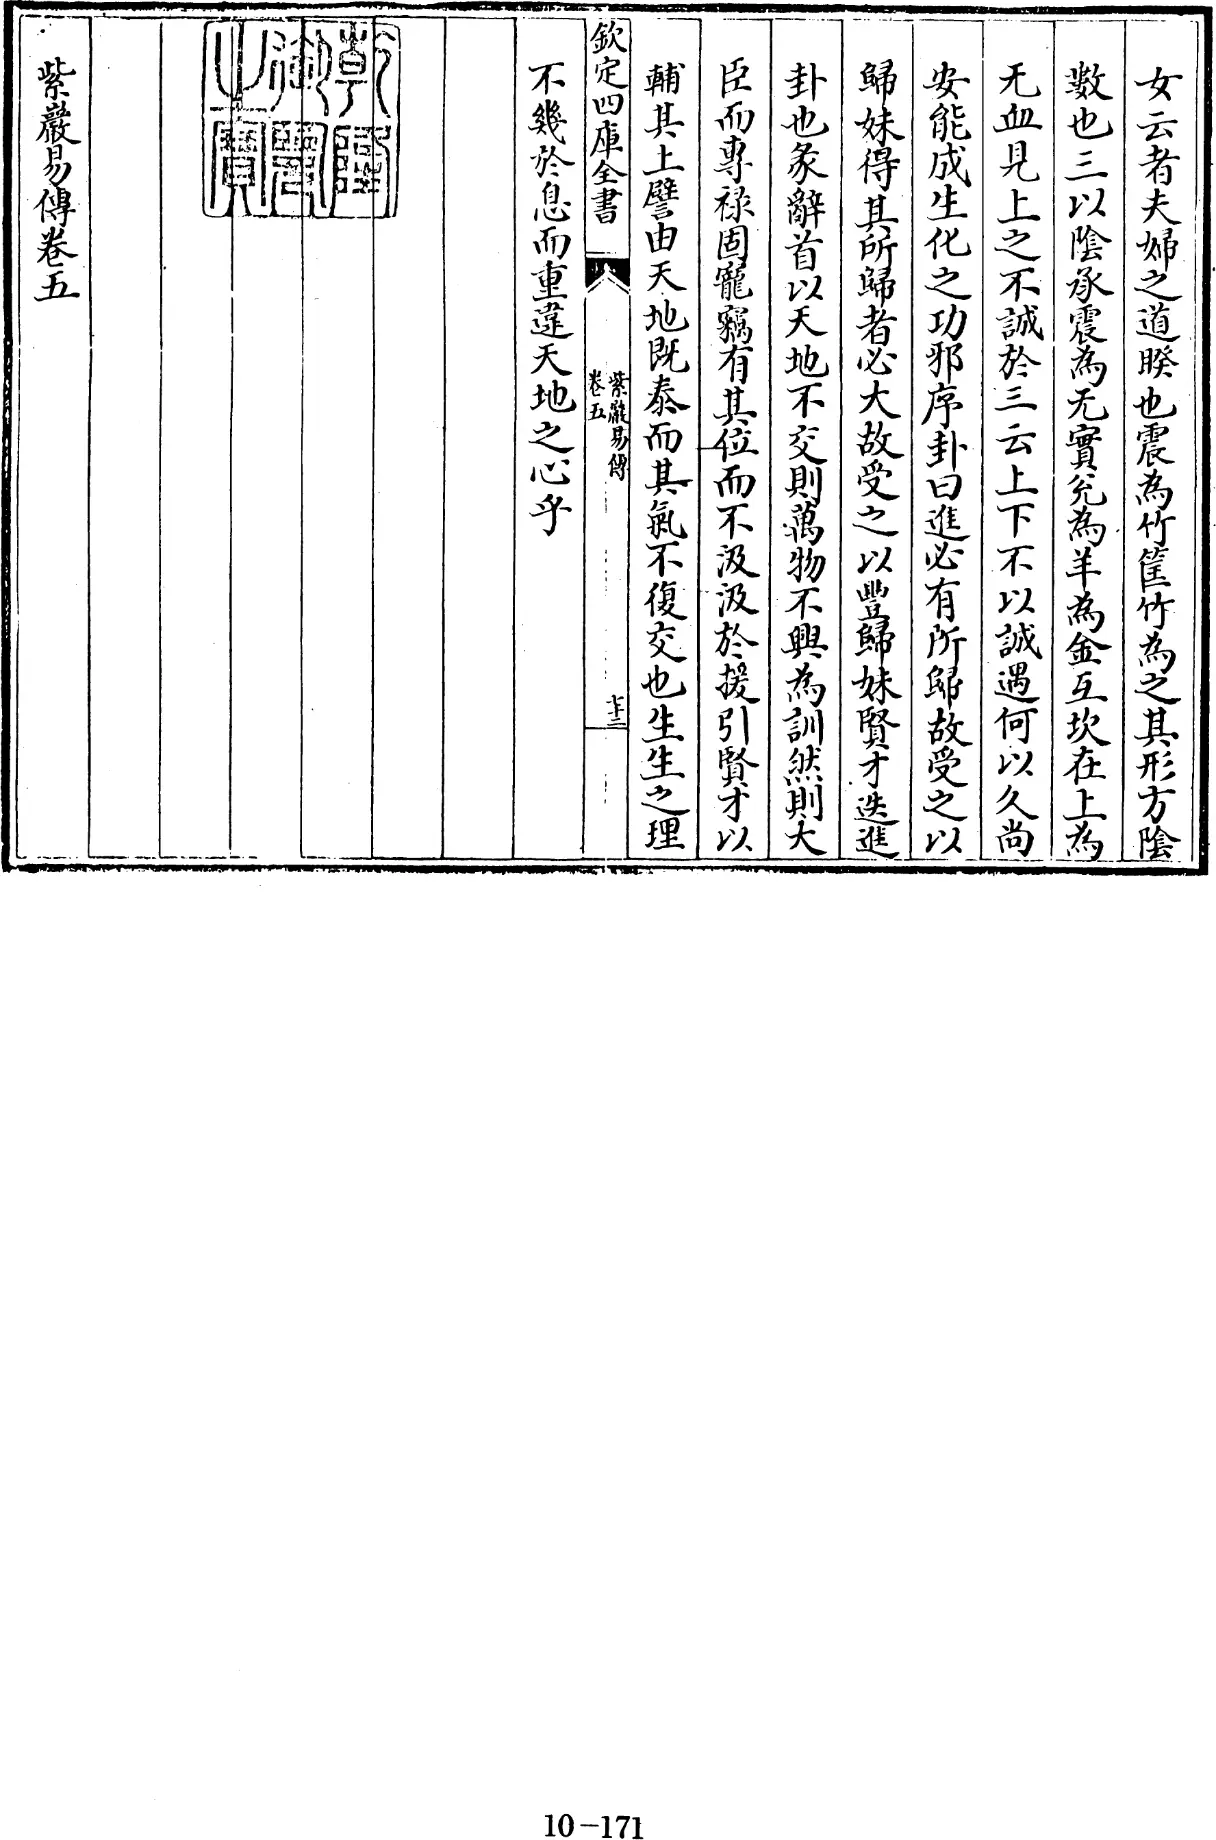 女云者夫婦之道睽也震為竹筐竹為之其形方陰
數也三以陰承震為无實兊為羊為金互坎在上為
无血見上之不誠於三云上下不以誠遇何以久尚
安能成生化之功邪序卦曰進必有所歸故受之以
歸妹得其所歸者必大故受之以豐歸妹賢才迭進
卦也彖辭首以天地不交則萬物不興為訓然則大
臣而專祿固寵竊有其位而不汲汲於援引賢才以
輔其上譬由天地既泰而其氣不復交也生生之理
欽定四庫全書
紫巖易傳
卷五
十三
不幾於息而重違天地之心乎
乾隆御覽之寶
紫巖易傳卷五
10-171